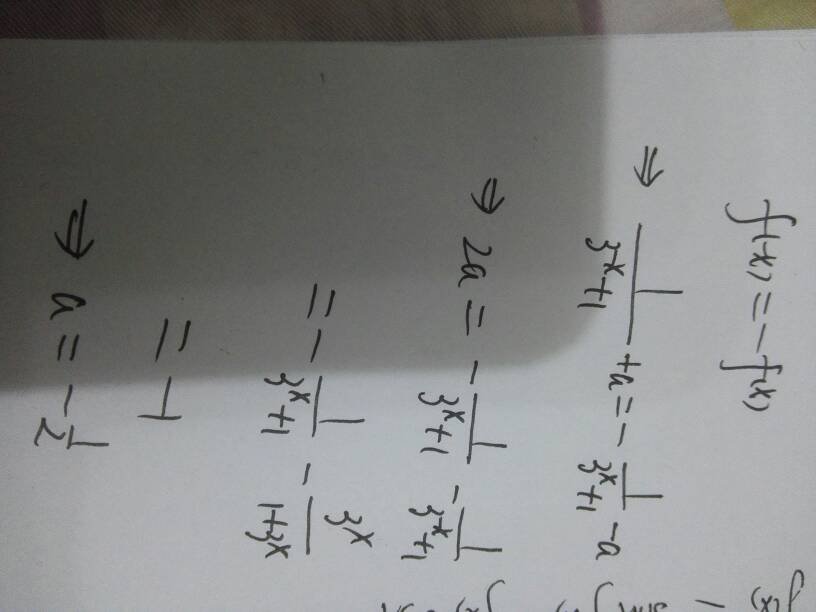 f(-x) = -f(x)
⇒ 1/(3^-x+1) + a = - 1/(3^x+1) - a
⇒ 2a = - 1/(3^x+1) - 1/(3^-x+1)
= - 1/(3^x+1) - 3^x/(1+3^x)
= -1
⇒ a = - 1/2